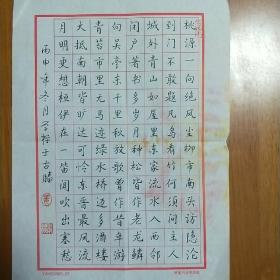 桃源一向绝风尘柳市南头访隐沦
到门不敢题凡鸟看竹何须问主人
城外青山如屋里东家流水入西邻
闭户著书多岁月种松皆作老龙鳞
句吴亭东千里秋放歌曾作昔年游
青苔寺里无马迹绿水桥边多酒楼
大抵南朝皆旷达可怜东晋最风流
月明更想桓伊在一笛闻吹出塞愁
丙申年冬月于古滕